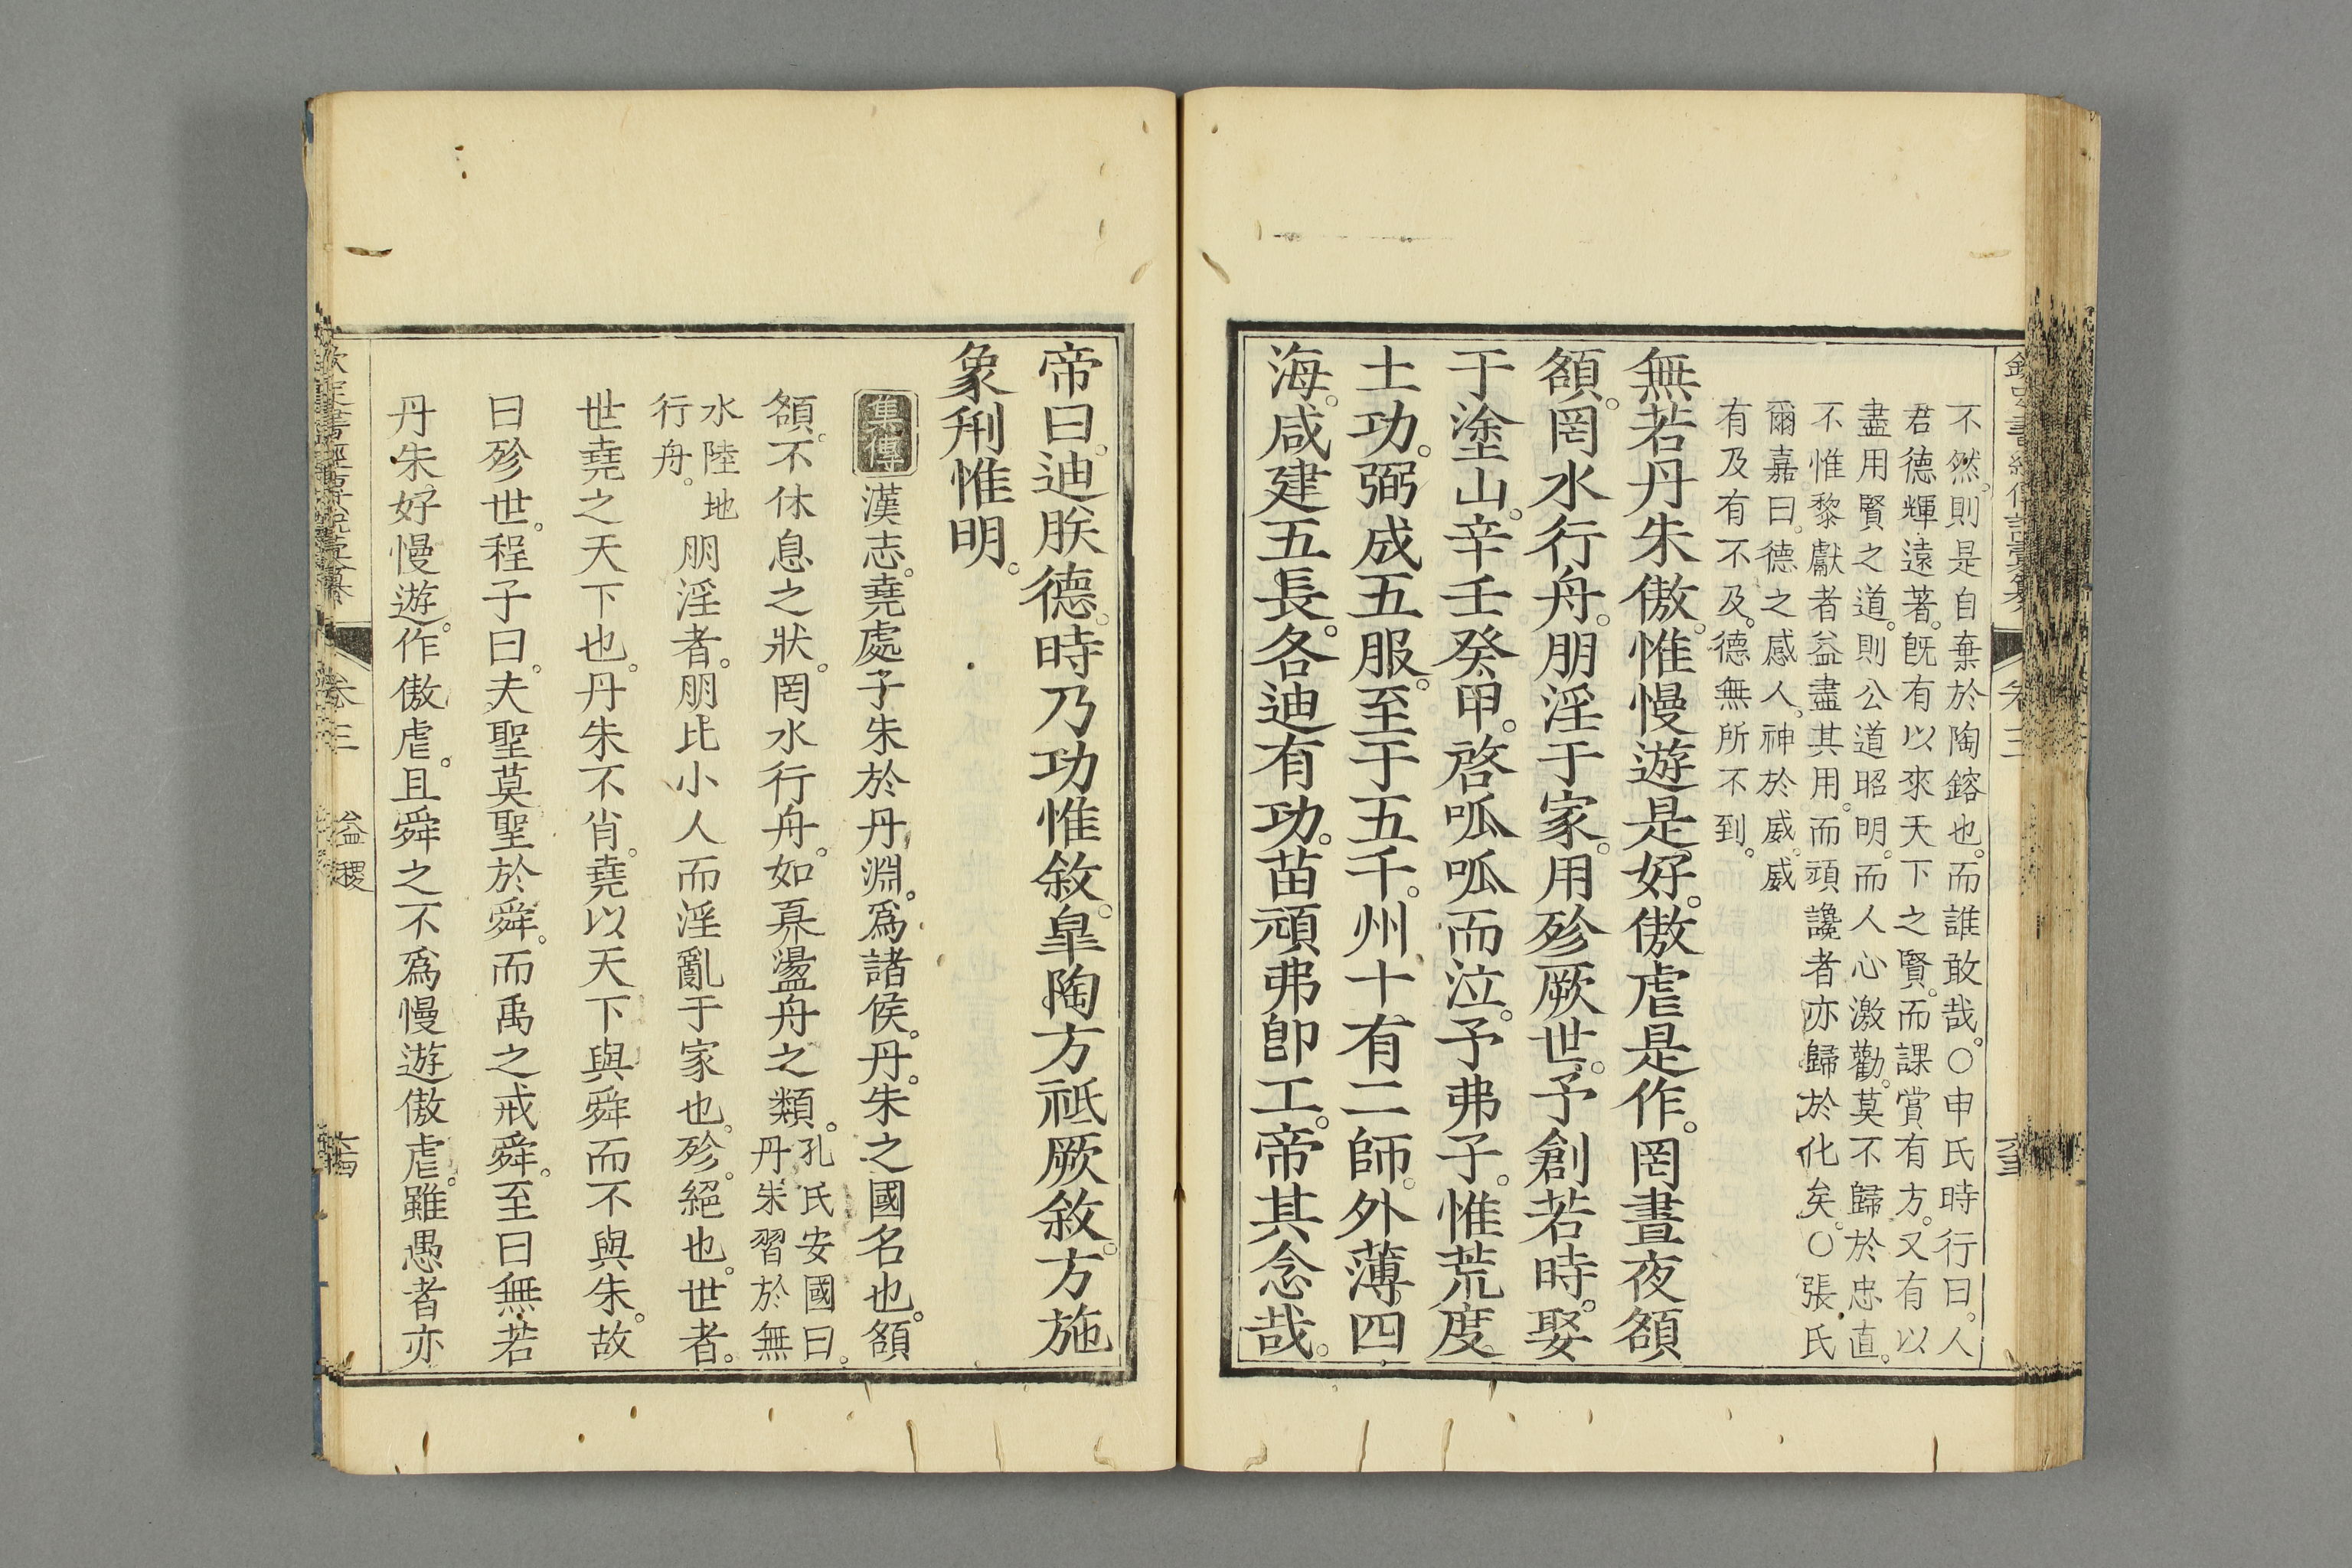 不然則是自棄於陶鎔也。而誰敢哉。○申氏時行曰。人
君德輝遠著。旣有以來天下之賢。而課賞有方。又有以
盡用賢之道。則公道昭明。而人心激勸。莫不歸於忠直。
不惟黎獻者益盡其用。而頑讒者亦歸於化矣。○張氏
爾嘉曰。德之感人。神於威。威
有及有不及。德無所不到。
無若丹朱傲。惟慢遊是好。傲虐是作。罔晝夜頟
頟。罔水行舟。朋淫于家。用殄厥世。予創若時。娶
于塗山。辛壬癸甲。啓呱呱而泣。予弗子。惟荒度
土功。弼成五服。至于五千。州十有二師。外薄四
海。咸建五長。各迪有功。苗頑弗卽工。帝其念哉。
帝曰。迪朕德。時乃功惟敘。皐陶方祗厥敘。方施
象刑惟明。
集傳漢志。堯處子朱於丹淵。爲諸侯。丹。朱之國名也。頟
頟。不休息之狀。罔水行舟。如奡盪舟之類。孔氏安國曰。
丹朱習於無
水陸地
行舟。朋淫者。朋比小人而淫亂于家也。殄。絕也。世者。
世堯之天下也。丹朱不肖。堯以天下與舜而不與朱。故
曰殄世。程子曰。夫聖莫聖於舜。而禹之戒舜。至曰無若
丹朱好慢遊。作傲虐。且舜之不爲慢遊傲虐。雖愚者亦
欽定書經傳說彙纂 卷三 益稷